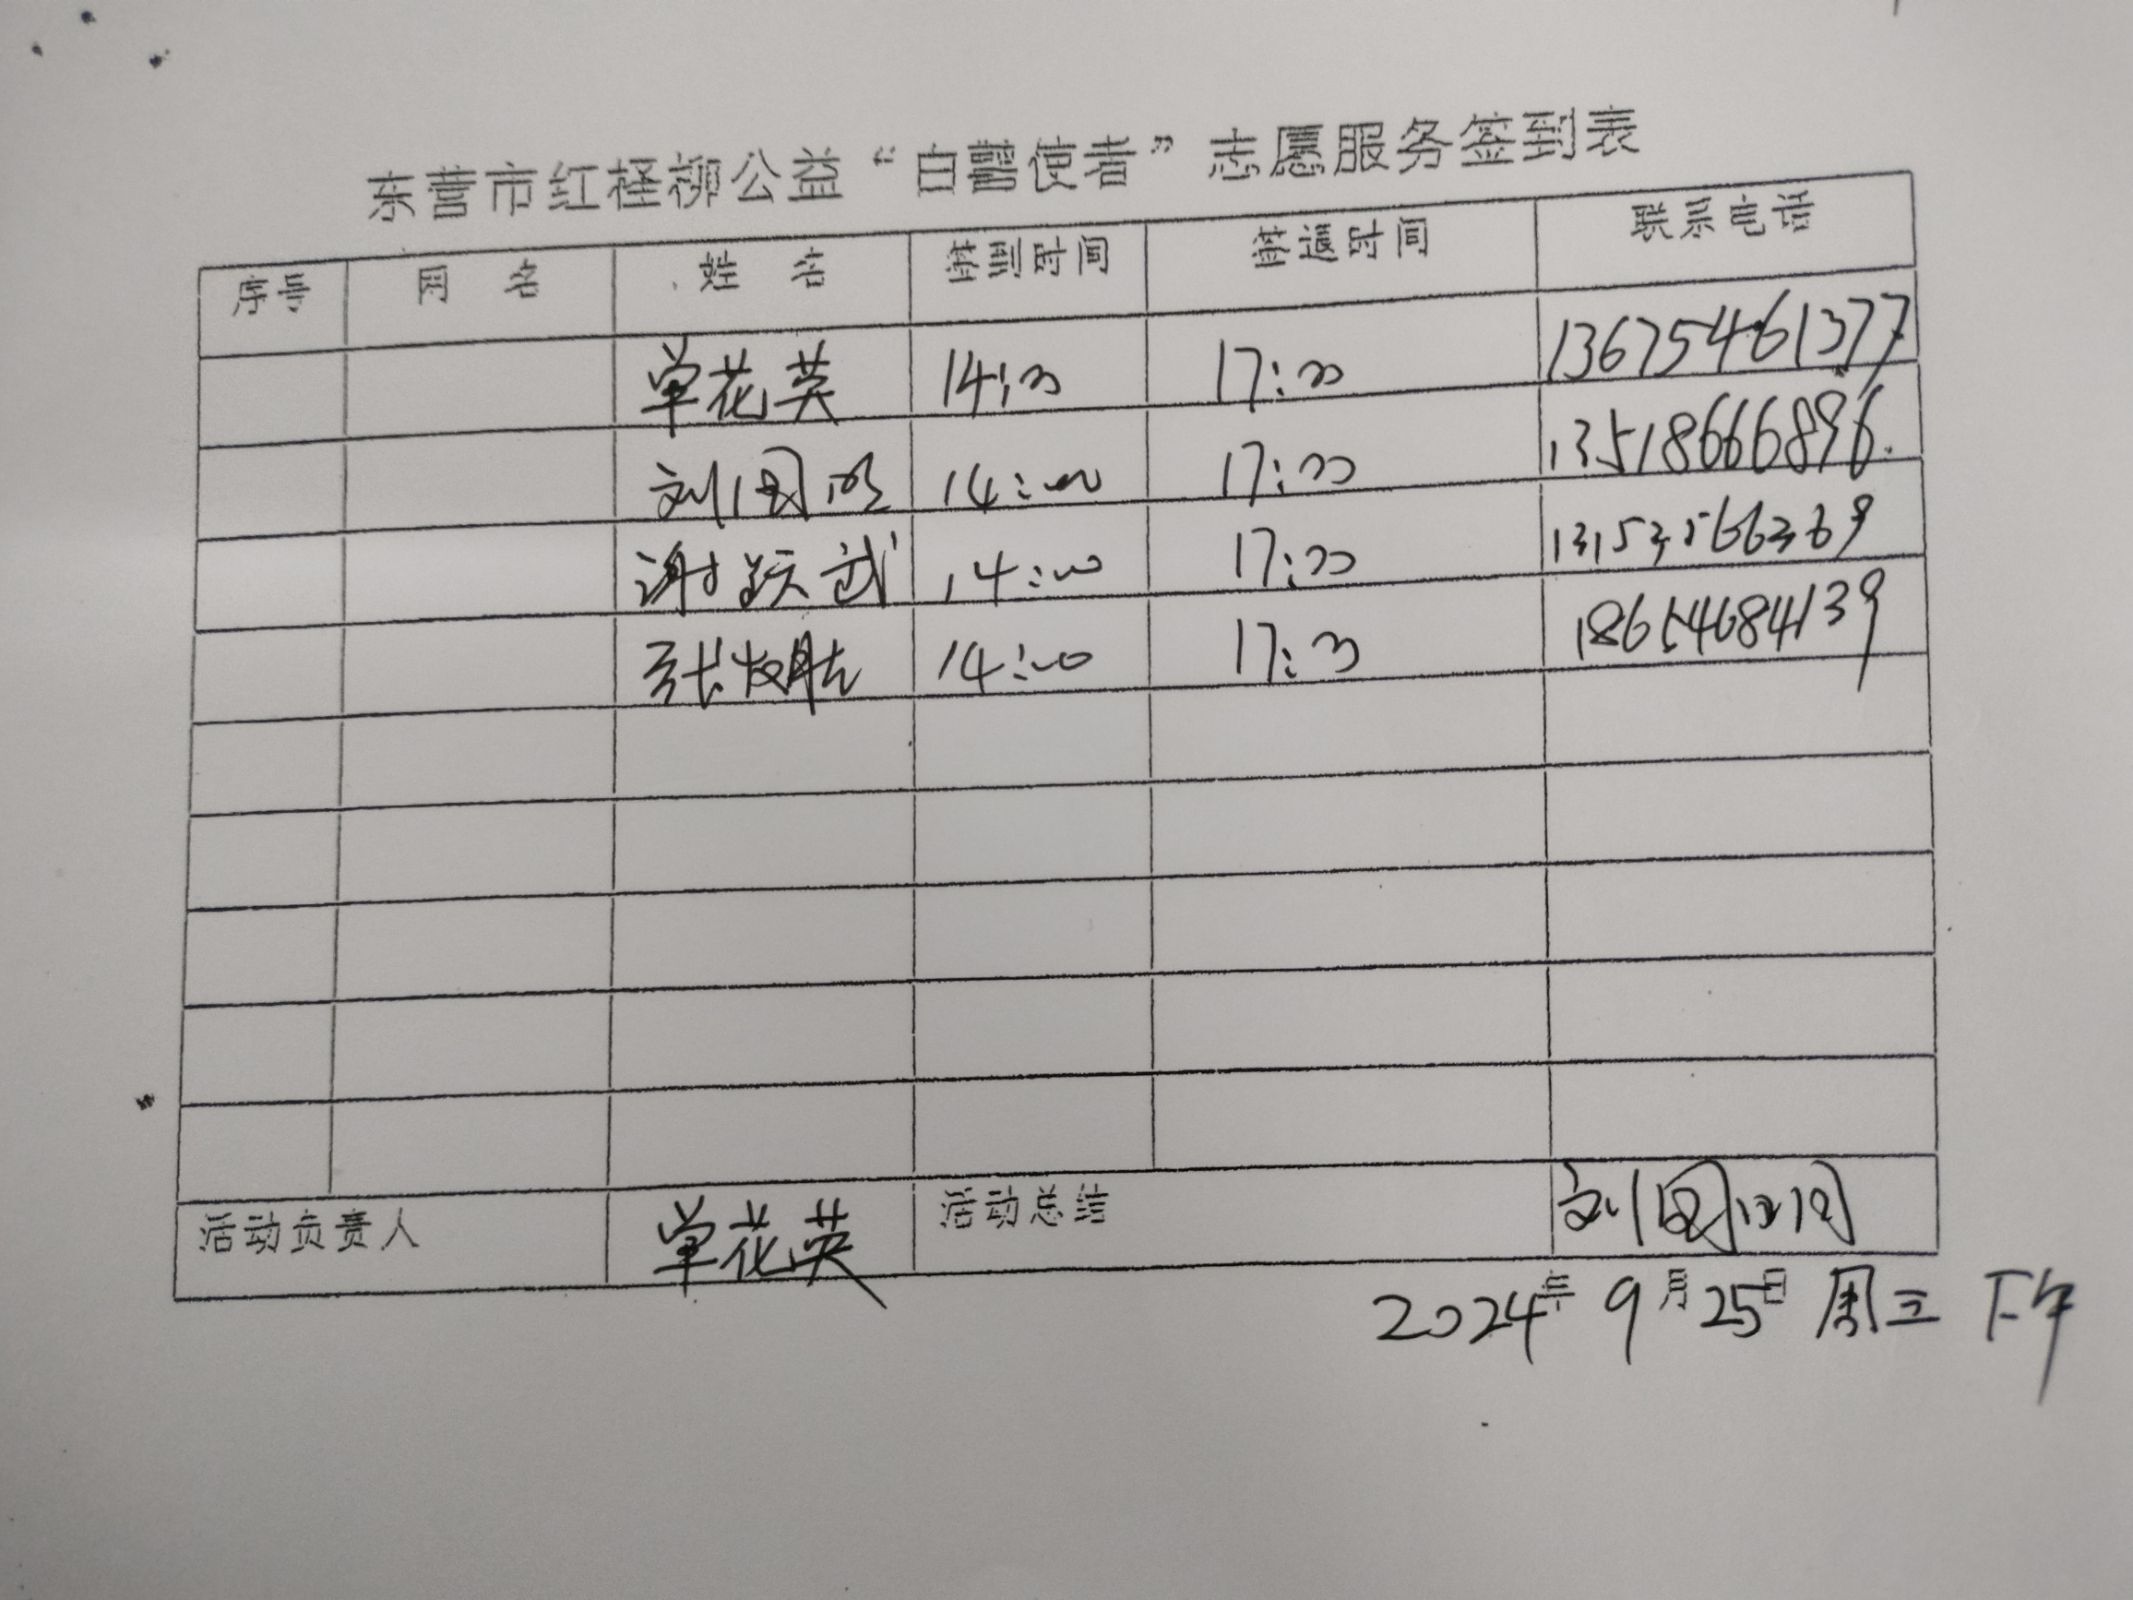 东营市红柽柳公益“白鹭使者”志愿服务签到表
序号 网 名 姓 名 签到时间 签退时间 联系电话
单花英 14:00 17:00 13675461377
刘国明 14:00 17:00 13518666896
谢跃武 14:00 17:00 13153566369
张 胜 14:00 17:00 18654684139
活动负责人 单花英 活动总结 刘国明
2024年9月25日 周三 下午